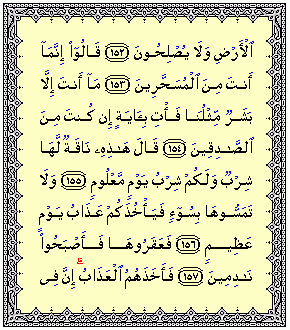 ٱلۡأَرۡضِ وَلَا يُصۡلِحُونَ ١٥٢ قَالُوٓاْ إِنَّمَآ
أَنتَ مِنَ ٱلۡمُسَحَّرِينَ ١٥٣ مَآ أَنتَ إِلَّا
بَشَرٞ مِّثۡلُنَا فَأۡتِ بِـَٔايَةٍ إِن كُنتَ مِنَ
ٱلصَّـٰدِقِينَ ١٥٤ قَالَ هَـٰذِهِۦ نَاقَةٞ لَّهَا
شِرۡبٞ وَلَكُمۡ شِرۡبُ يَوۡمٖ مَّعۡلُومٖ ١٥٥ وَلَا
تَمَسُّوهَا بِسُوٓءٖ فَيَأۡخُذَكُمۡ عَذَابُ يَوۡمٍ
عَظِيمٖ ١٥٦ فَعَقَرُوهَا فَأَصۡبَحُواْ
نَـٰدِمِينَ ١٥٧ فَأَخَذَهُمُ ٱلۡعَذَابُۚ إِنَّ فِي